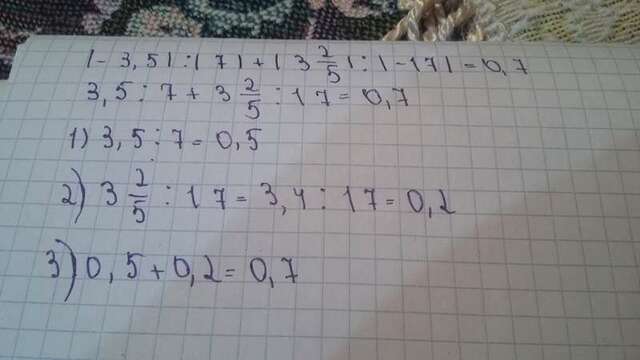 |-3,5|:|7|+|3 2/5|:|-17|=0,7
3,5:7+3 2/5:17=0,7
1) 3,5:7=0,5
2) 3 2/5:17=3,4:17=0,2
3) 0,5+0,2=0,7